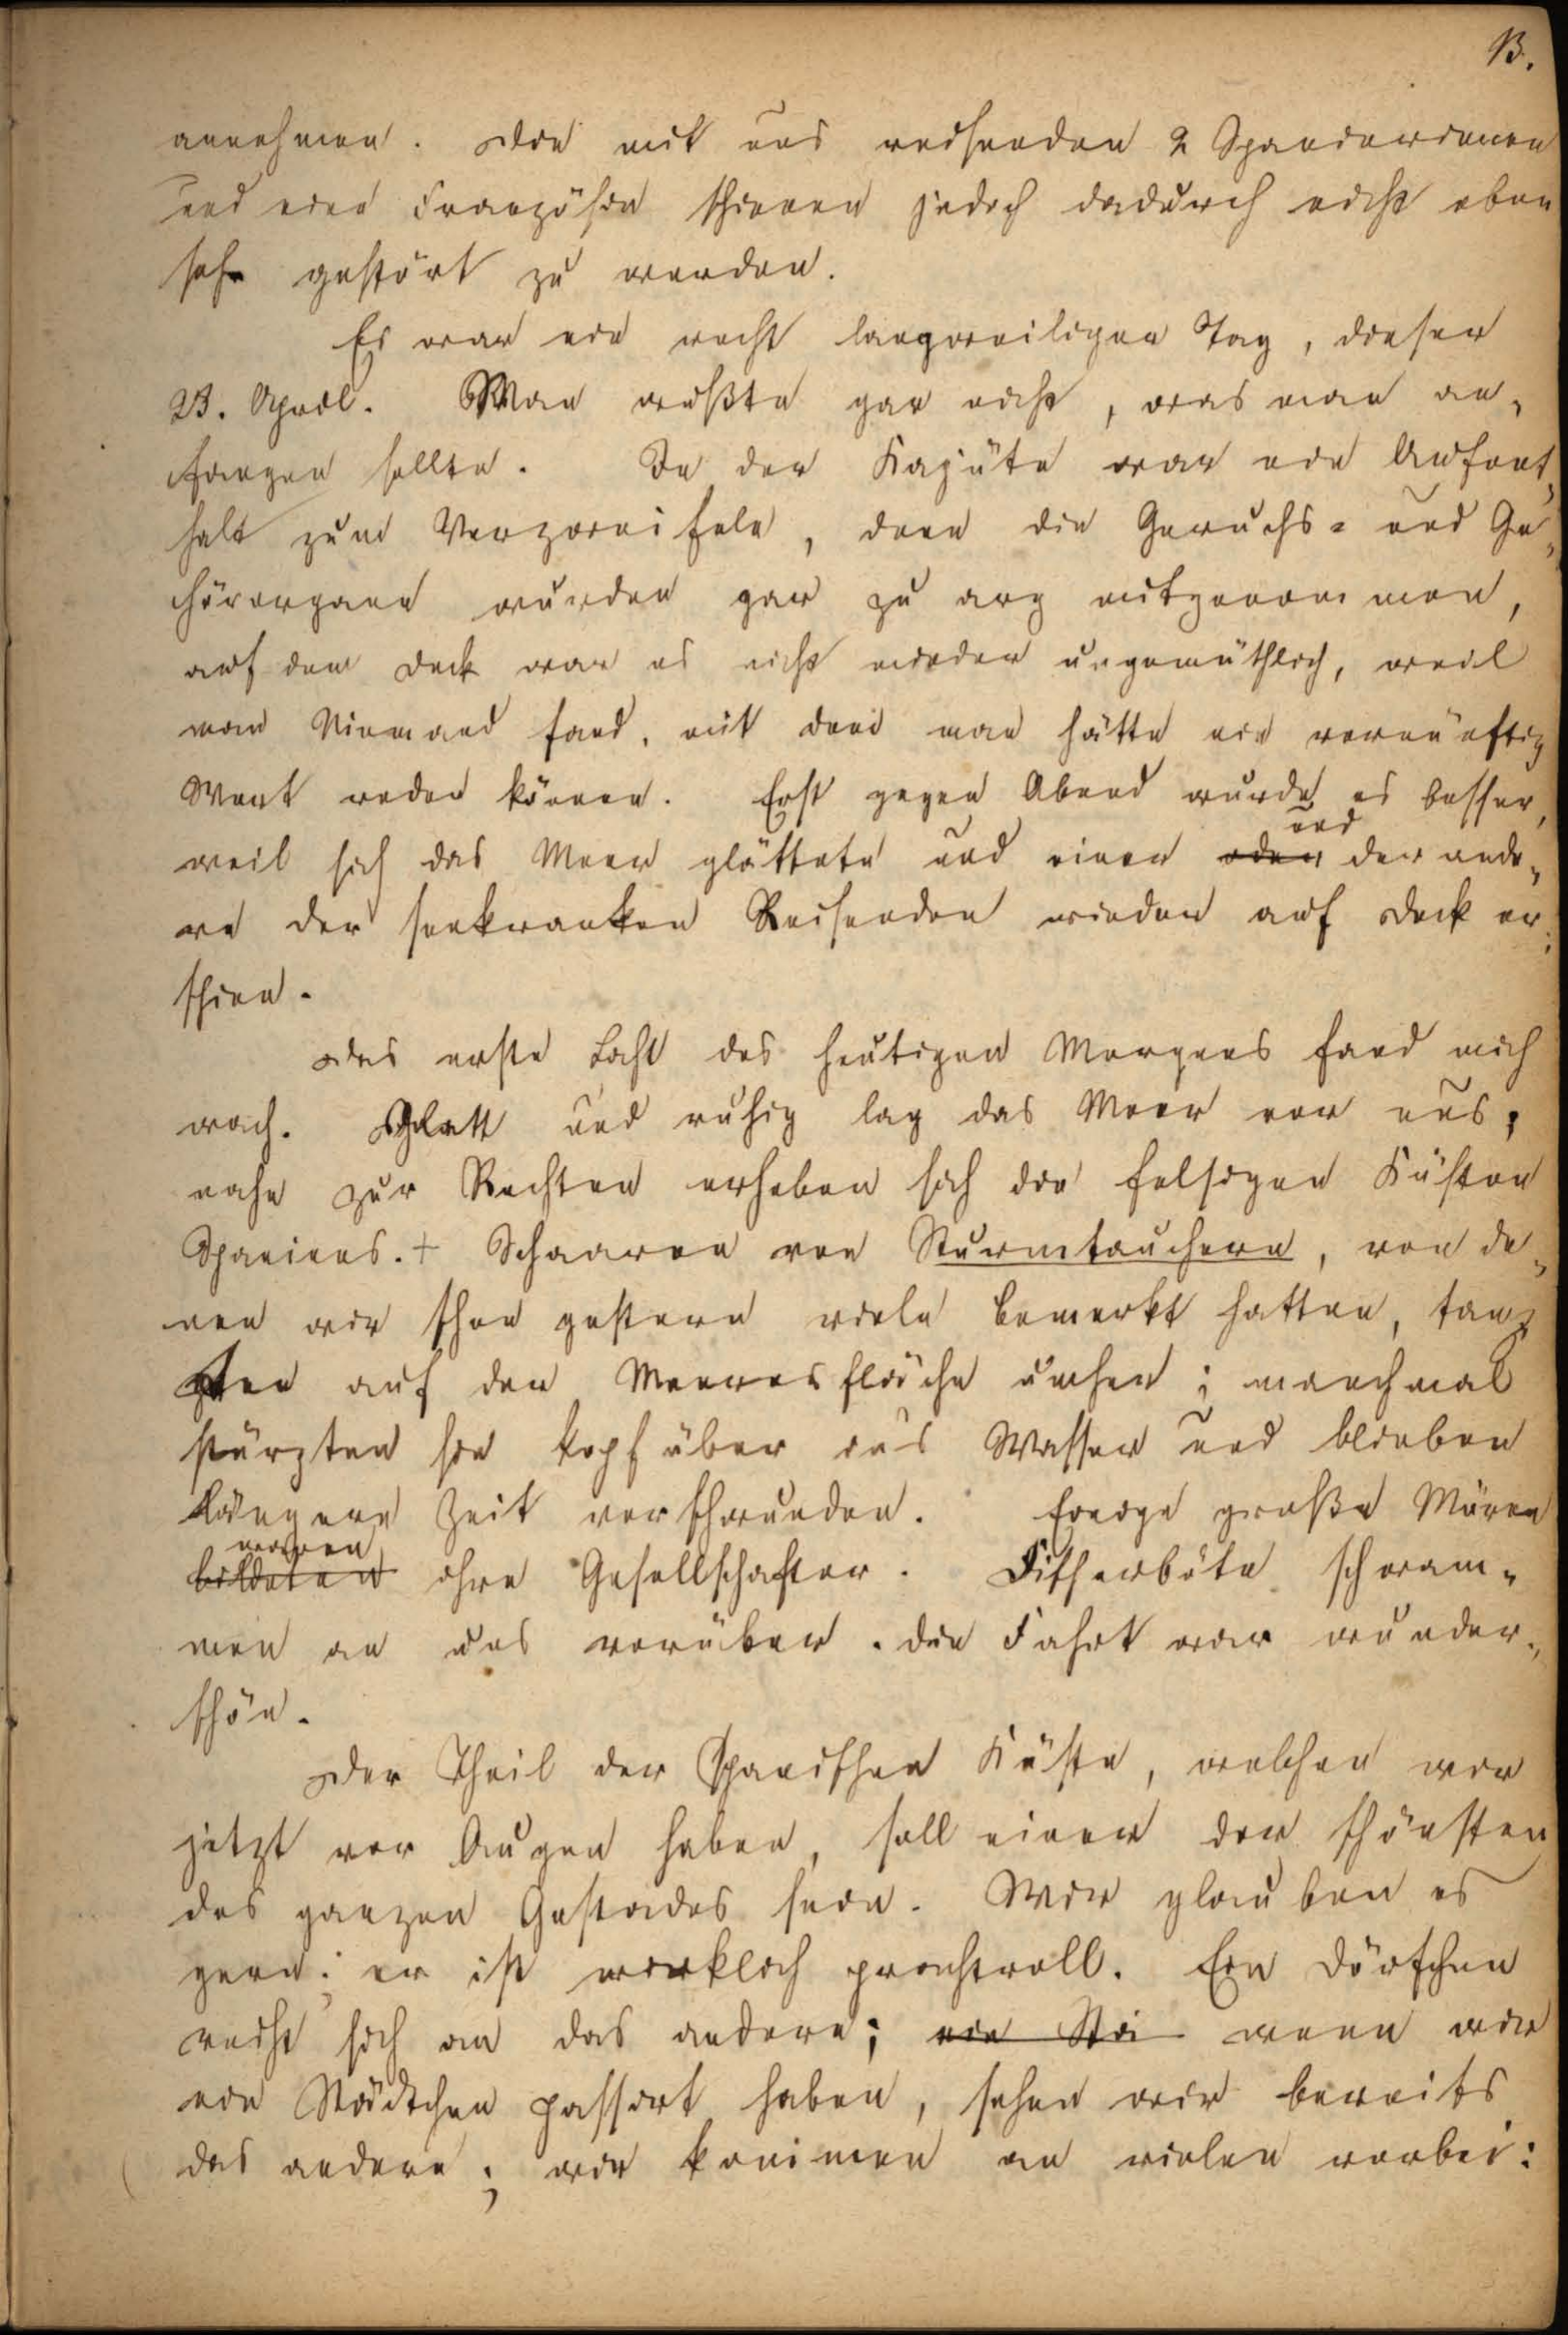 13.
annehmen. Die mit uns reisenden 2 Spanierinnen
und eine Französin schienen jedoch dadurch nicht eben
sehr gestört zu werden.
Es war ein recht langweiliger Tag, dieser
23. April. Man wußte gar nicht, was man an„
fangen sollte. In der Kajüte war ein Aufent„
halt zum Verzweifeln, denn die Geruchs= und Ge„
hörorgane wurden gar zu arg mitgenommen,
auf dem Deck war es nicht minder ungemüthlich, weil
man Niemand fand, mit dem man hätte ein vernünftig
Wort reden können. Erst gegen Abend wurde es besser,
weil sich das Meer glättete und einer oder und der ande„
re der seekranken Reisenden wieder auf Deck er„
schien.
Das erste Licht des heutigen Morgens fand mich
wach. Glatt und ruhig lag das Meer vor uns;
nahe zur Rechten erheben sich die felsigen Küsten
Spaniens. + Schaaren von Sturmtauchern, von de„
nen wir schon gestern viele bemerkt hatten, tanz
ten auf der Meeresfläche umher; manchmal
stürzten sie kopfüber ins Wasser und blieben
längere Zeit verschwunden. Einige große Möven
bildeten waren ihre Gesellschafter. Fischerböte schwam„
men an uns vorüber. die Fahrt war wunder„
schön.
Der Theil der spanischen Küste, welchen wir
jetzt vor Augen haben, soll einer der schönsten
des ganzen Gestades sein. Wir glauben es
gern; er ist wirklich prachtvoll. Ein Dörfchen
reiht sich an das andere; ein Stä wenn wir
ein Städtchen passirt haben, sehen wir bereits
das andere; wir kommen an vielen vorbei: